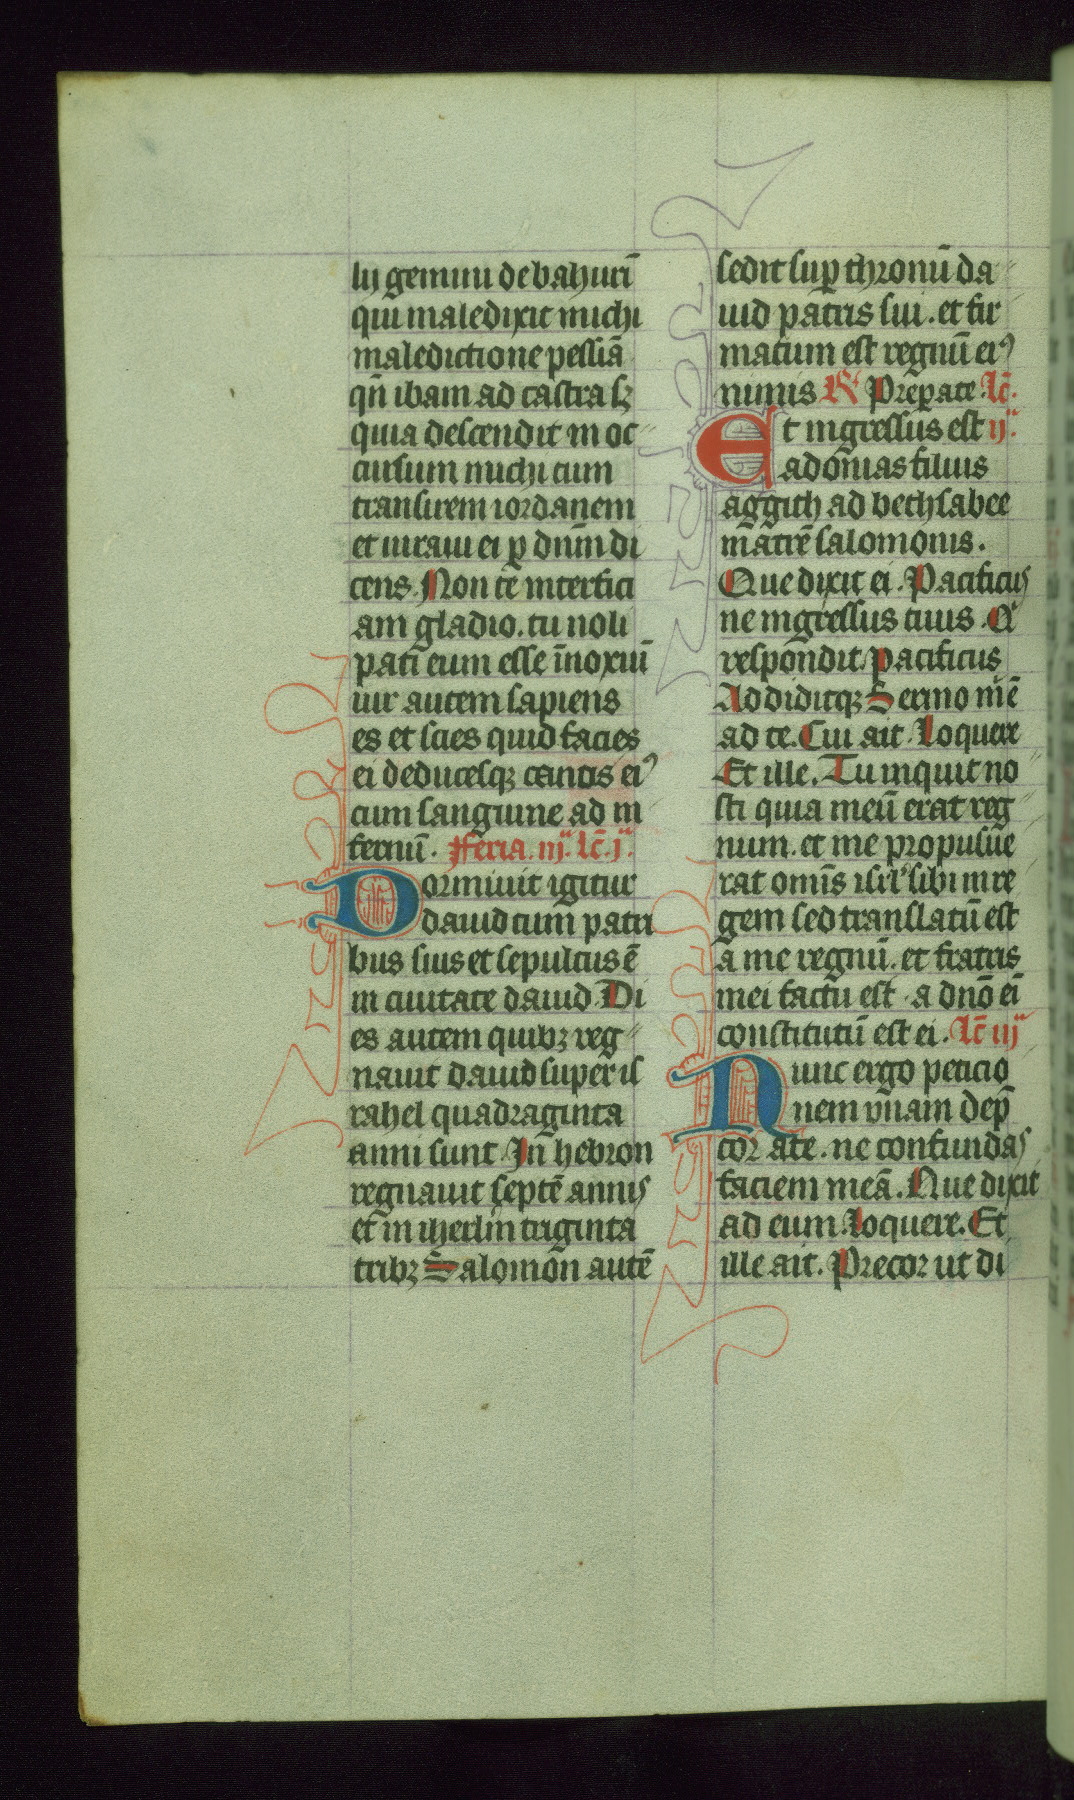 lij gemini de bahuri̅
qui maledixit michi
maledictione pessi̅a̅
qn̅ ibam ad castra sꝫ
quia descendit in oc
cursum michi cum
transirem iordanem
et iuraui ei ꝑ dn̅m di
cens. Non te̅ interfici
am gladio. tu noli
pati eum esse in̅oxiu̅
uir autem sapiens
es et scies quid facies
ei deducesqꝫ canos eiꝰ
cum sanguine ad in
fernu̅. Feria. iij. lc̅. j.
Dormiuit igitur
dauid cum patri
bus suis et sepultus e̅
in ciuitate dauid. Di
es autem quibꝫ reg
nauit dauid super is
rahel quadraginta
anni sunt. In̅ hebron
regnauit septe̅ annis
et in iherl̅m triginta
tribꝫ Salomon aute̅
sedit suꝑ thronu̅ da
uid patris sui. et fir
matum est regnu̅ eiꝰ
nimis ℟ Preꝑate. lc̅.
Et ingressus est ij.
adonias filius
aggith ad bethsabee
matre̅ salomonis.
Que dixit ei. Pacificus
ne ingressus tuus. Qi
respondit. pacificus
Addiditqꝫ Sermo m̅e̅
ad te. Cui ait. Loquere
Et ille. Tu inquit no
sti quia meu̅ erat reg
num. et me proposue
rat omis̅ isrl̅ sibi in re
gem sed translatu̅ est
a me regnu̅. et fratris
mei factu̅ est. a dn̅o ei̅
constitutu̅ est ei. lc̅ iij
Nunc ergo peticio
nem vnam dep̅
cor a te. ne confundas
faciem mea̅. Que dixit
ad eum. Loquere. Et
ille ait. Precor ut di